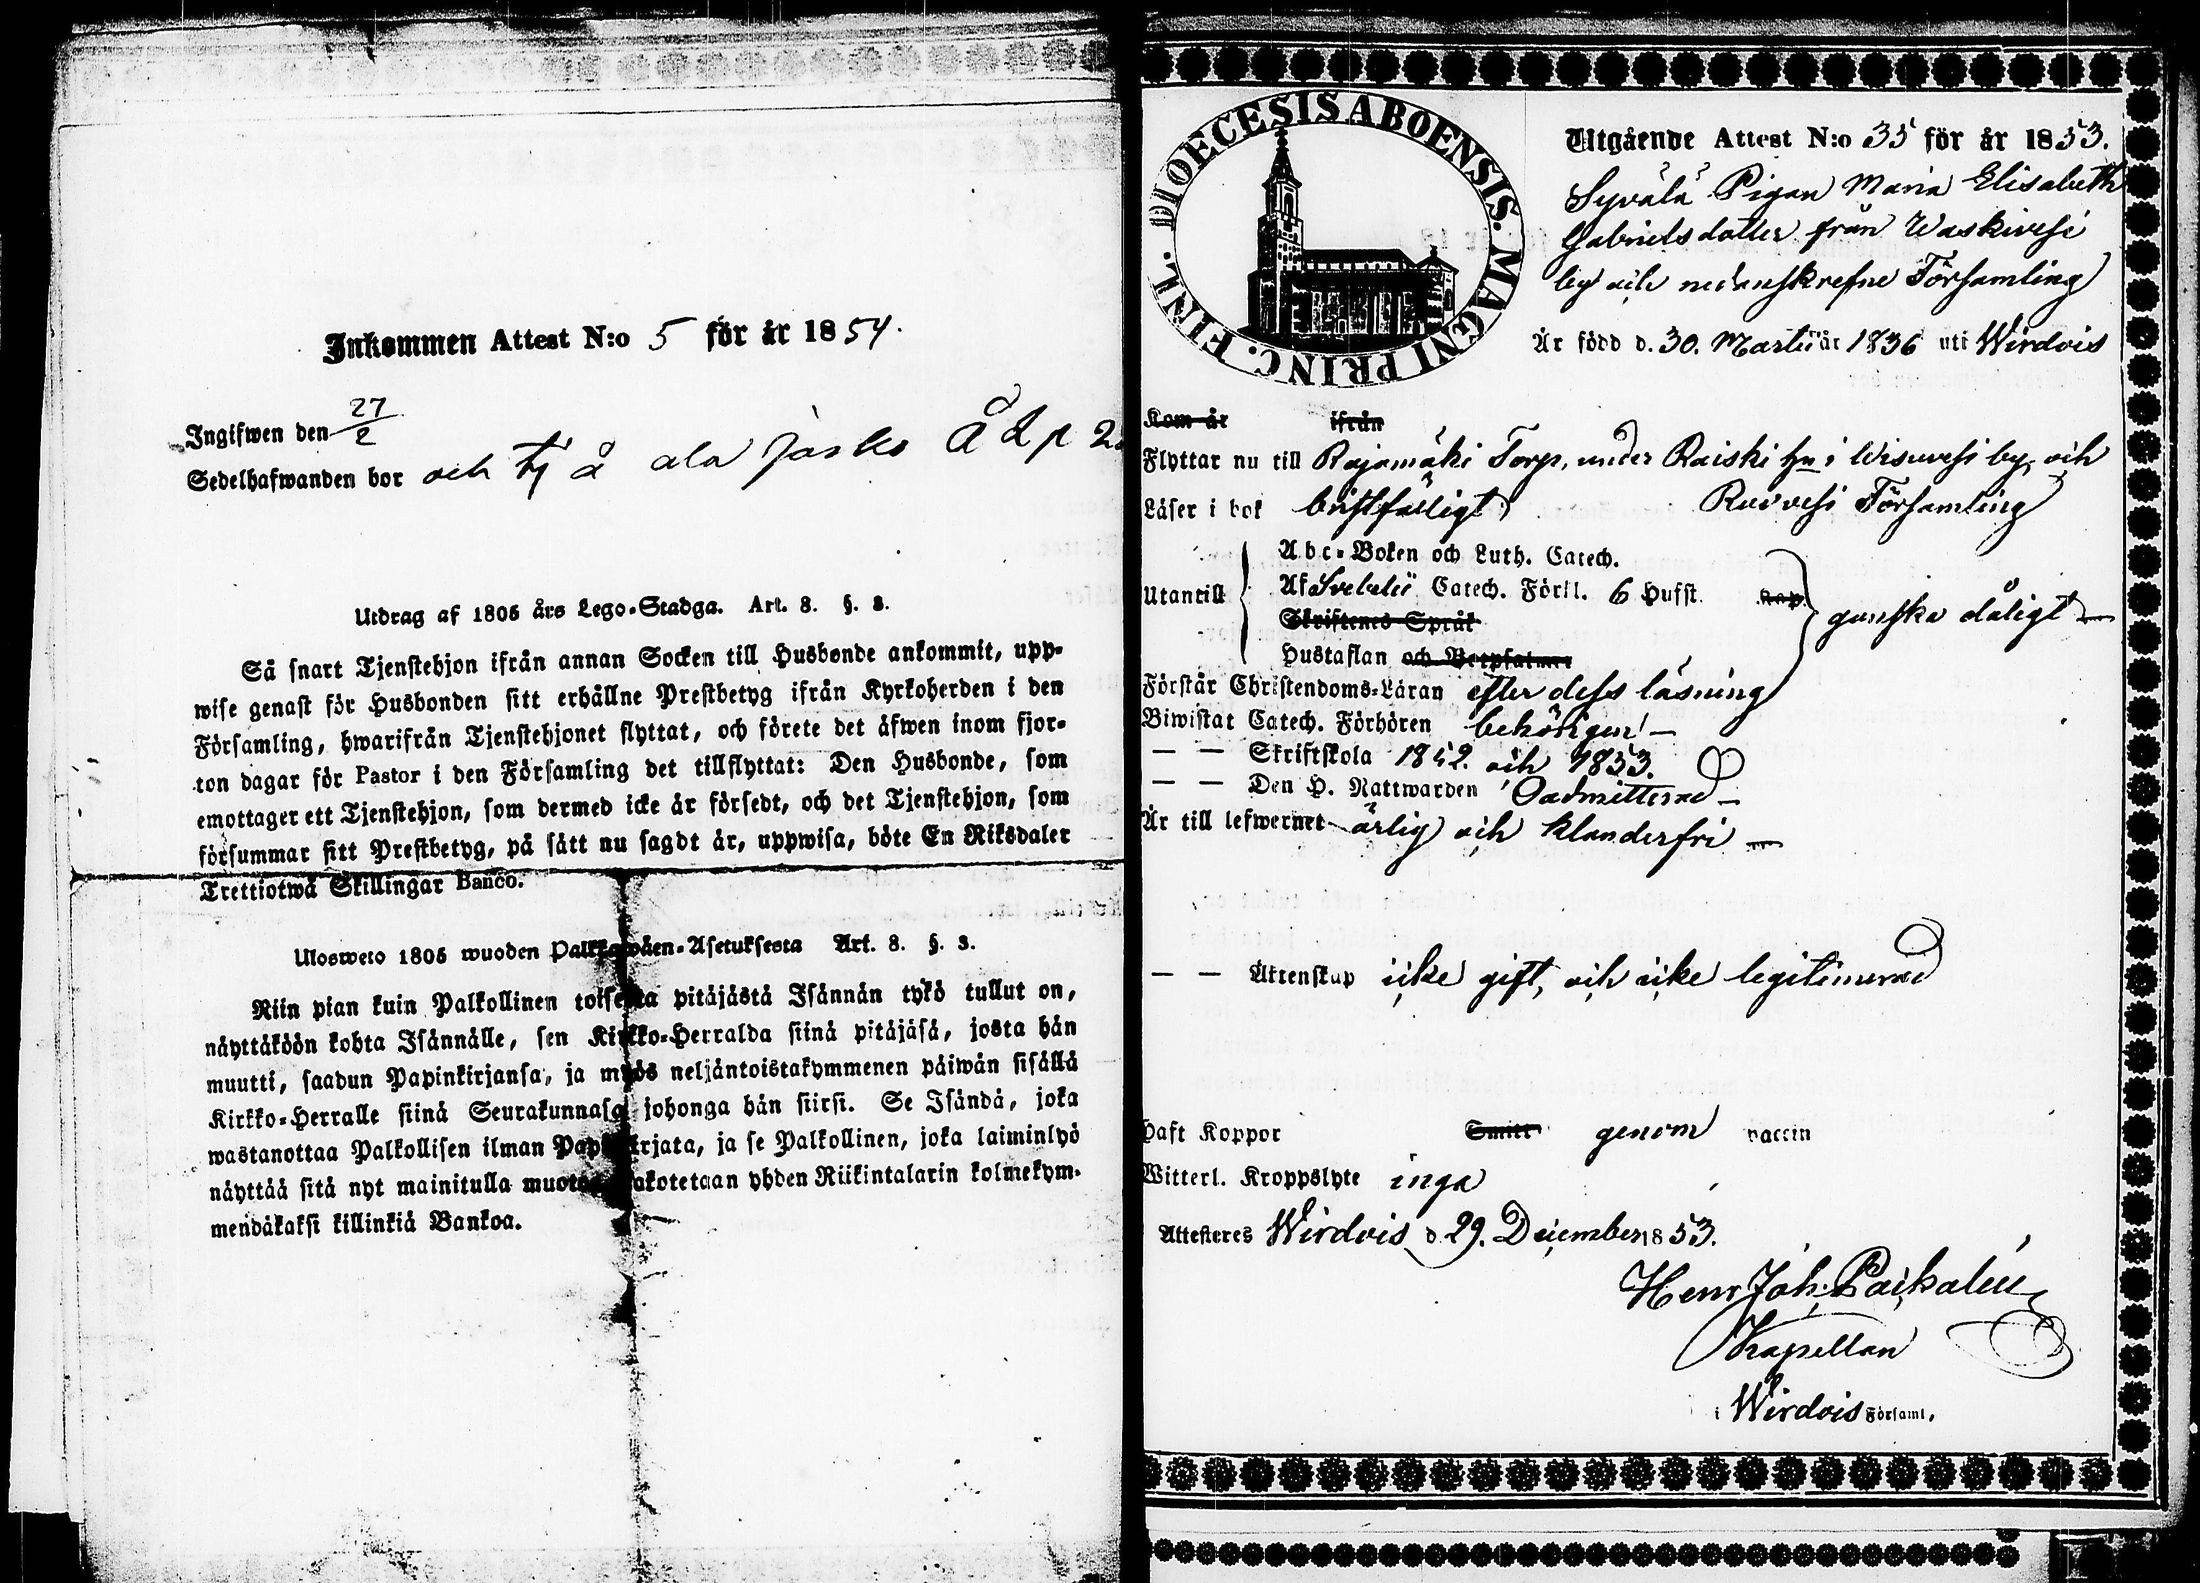 Inkommen Attest N:o 5 för år 1854.
Ingifwen den 27/2
Sedelhafwanden bor och tj å ala Jäsko Å
Utdrag af 1805 års Lego-Stadga. Art. 8. §. 3.
Så snart Tjenstehjon ifrån annan Socken till Husbonde ankommit, upp-
wise genast för Husbonden sitt erhållne Prestbetyg ifrån Kyrkoherden i den
Församling, hwarifrån Tjenstehjonet flyttat, och förete det äfwen inom fjor-
ton dagar för Pastor i den Församling det tillflyttat: Den Husbonde, som
emottager ett Tjenstehjon, som dermed icke är försedt, och det Tjenstehjon, som
försummar sitt Prestbetyg, på sätt nu sagdt är, uppwisa, böte En Riksdaler
Trettiotwå Skillingar Banco.
Ulosweto 1805 wuoden Palkkawäen-Asetuksesta Art. 8. §. 3.
Niin pian kuin Palkollinen toisesta pitäjästä Isännän tykö tullut on,
näyttäköön kohta Isännälle, sen Kirkko-Herralda siinä pitäjäsä, josta hän
muutti, saadun Papinkirjansa, ja myös neljäntoistakymmenen päiwän sisällä
Kirkko-Herralle siinä Seurakunnasa johonga hän siirsi. Se Isändä, joka
wastanottaa Palkollisen ilman Papinkirjata, ja se Palkollinen, joka laiminlyö
näyttää sitä nyt mainitulla muotoa, sakotetaan yhden Riikintalarin kolmekym-
mendäkaksi killinkiä Bankoa.
DIOECESIS ABOENSIS. MAGNI PRINC. FINL.
Utgående Attest N:o 35 för år 1853.
Syvälä Pigan Maria Elisabeth
Gabrielsdotter från Waskivesi
by och nedanskrefne Församling
Är född d. 30. Martii år 1836 uti Wirdois
Kom år ifrån
Flyttar nu till Rajamäki Torp, under Raiski hn i Wisuvesi by, och
Ruovesi Församling
Läser i bok bristfälligt
Abc-Boken och Luth. Catech.
Utantill Af Svebelii Catech. Förkl. 6 Hufst. Kap. ganska dåligt
Skriftenes Språk
Hustaflan och Botpsalmer
Förstår Christendoms-Läran efter dess läsning
Biwistat Catech. Förhören behörigen
— — Skriftskola 1852. och 1853.
— — Den H. Nattwarden Oadmitterad
Är till lefwernet ärlig och klanderfri
— — Äktenskap icke gift, och icke legitimerad
Haft Koppor Smitt genom vaccin
Witterl. Kroppslyte inga
Attesteres Wirdois d. 29. December 1853.
Henr Joh.
Kapellan
i Wirdois Församl.